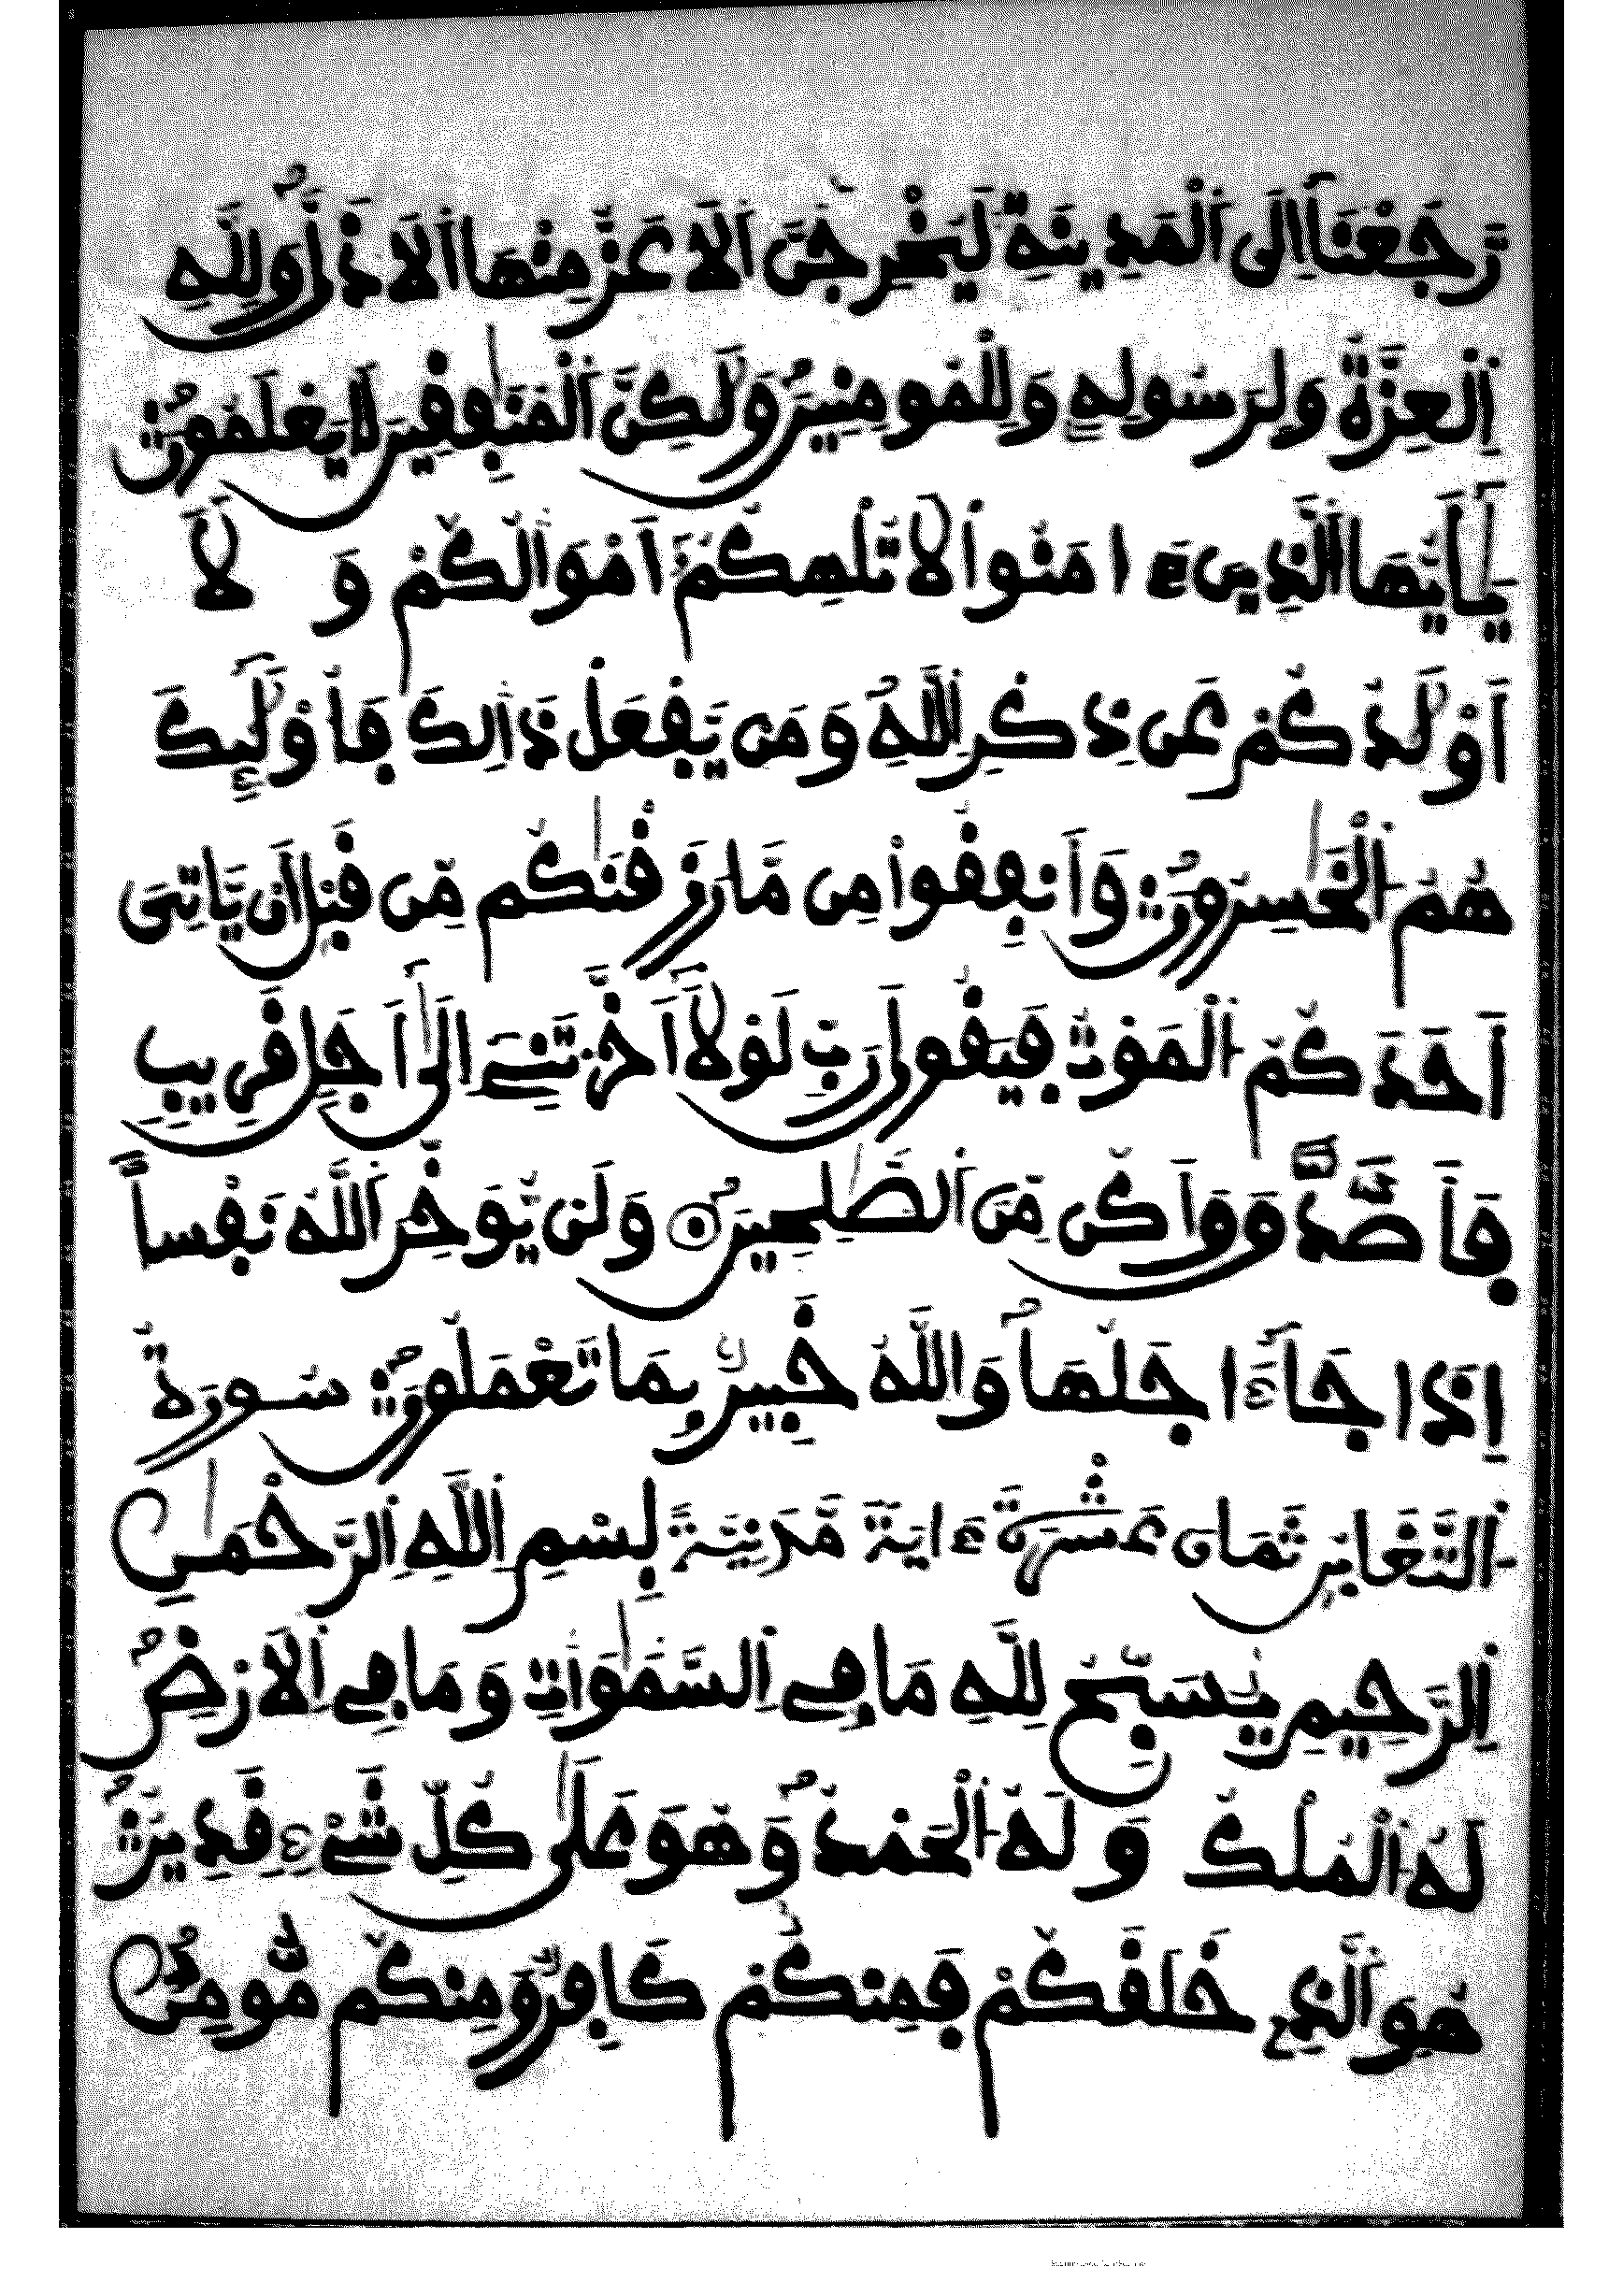 رَّجَعْنَآ إِلَى ٱلْمَدِينَةِ لَيُخْرِجَنَّ ٱلَاعَزُّ مِنْهَا ٱلَاذَلَّ وَلِلهِ
اِ۬لْعِزَّةُ وَلِرَسُولِهِۦ وَلِلْمُومِنِينَ وَلَٰكِنَّ ٱلْمُنَٰفِقِينَ لَا يَعْلَمُونَ
يَٰٓأَيُّهَا ٱلَّذِينَ ءَامَنُوا۟ لَا تُلْهِكُمُۥٓ أَمْوَٰلُكُمْ وَلَآ
أَوْلَٰدُكُمْ عَن ذِكْرِ ٱللَّهِ وَمَن يَّفْعَلْ ذَٰلِكَ فَأُو۟لَٰٓئِكَ
هُمُ ٱلْخَٰسِرُونَ وَأَنفِقُوا۟ مِن مَّا رَزَقْنَٰكُم مِّن قَبْلِ أَنْ يَّاتِىَ
أَحَدَكُمُ ٱلْمَوْتُ فَيَقُولَ رَبِّ لَوْلَآ أَخَّرْتَنِے إِلَىٰٓ أَجَلٍ قَرِيبٍ
فَأَصَّدَّقَ وَأَكُن مِّنَ ٱلصَّٰلِحِينَ ۝ وَلَنْ يُّوَخِّرَ ٱللَّهُ نَفْساً
إِذَا جَآءَ اجَلُهَا وَٱللَّهُ خَبِيرٌۢ بِمَا تَعْمَلُونَ سُورَةُ
ٱلتَّغَابُنِ ثَمَانِ عَشْرَةَ ءَايَةً مَّدَنِيَّةً بِسْمِ ٱللَّهِ ٱلرَّحْمَٰنِ
اِ۬لرَّحِيمِ يُسَبِّحُ لِلهِ مَا فِے ٱلسَّمَٰوَٰتِ وَمَا فِے ٱلَارْضِ
لَهُ ٱلْمُلْكُ وَلَهُ ٱلْحَمْدُ وَهُوَ عَلَىٰ كُلِّ شَےْءٍ قَدِيرٌ
هُوَ ٱلَّذِے خَلَقَكُمْ فَمِنكُمْ كَافِرٌ وَمِنكُم مُّومِنٌ